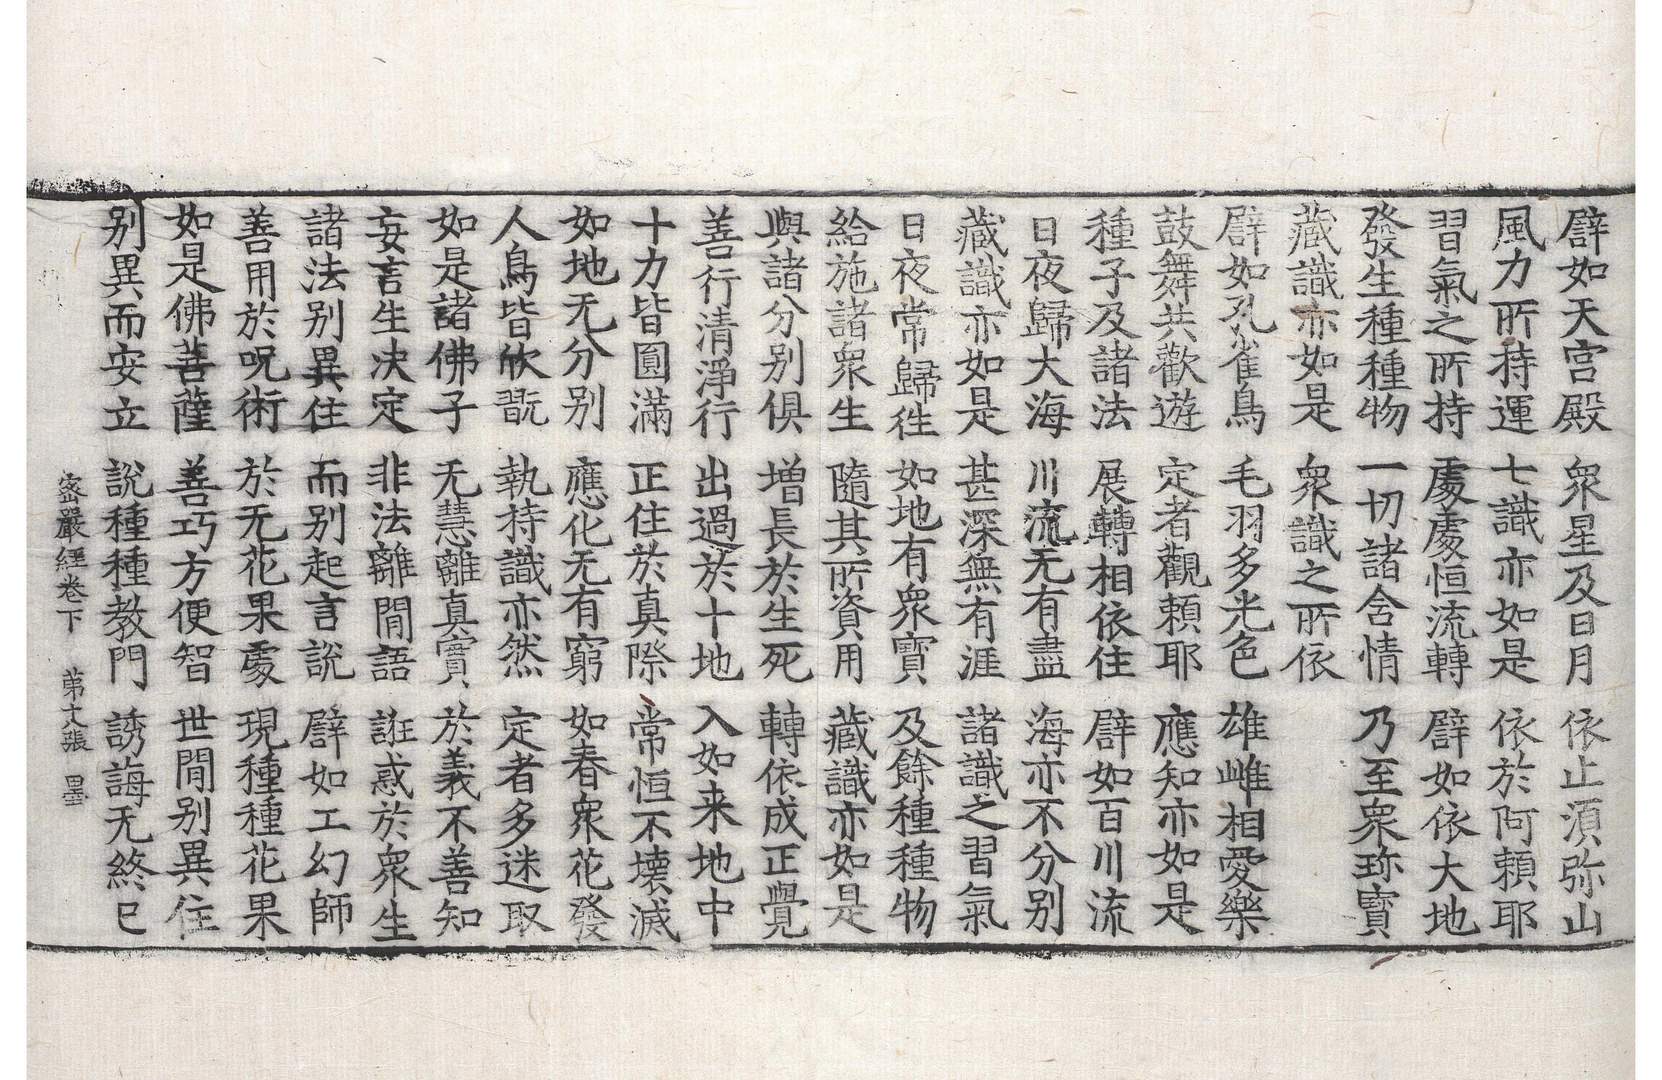 譬如天宮殿　衆星及日月　依止湏弥山
風力所持運　七識亦如是　依於阿頼耶
習氣之所持　處處恒流轉　譬如依大地
發生種種物　一切諸含情　乃至衆珎寳
藏識亦如是　衆識之所依
譬如孔雀鳥　毛羽多光色　雄雌相愛樂
鼓舞共歡遊　定者觀頼耶　應知亦如是
種子及諸法　展轉相依住　譬如百川流
日夜歸大海　川流无有盡　海亦不分别
藏識亦如是　甚深無有涯　諸識之習氣
日夜常歸徃　如地有衆寳　及餘種種物
給施諸衆生　隨其所資用　藏識亦如是
與諸分别俱　增長於生死　轉依成正覺
善行清淨行　出過於十地　入如来地中
十力皆圓滿　正住於真際　常恒不壞滅
如地无分别　應化无有窮　如春衆花發
人鳥皆欣翫　執持識亦然　定者多迷取
如是諸佛子　无慧離真實　於義不善知
妄言生决定　非法離間語　誑惑於衆生
諸法别異住　而别起言說　譬如工幻師
善用於呪術　於无花果處　現種種花果
如是佛菩薩　善巧方便智　世間别異住
别異而安立　說種種教門　誘誨无終已
密嚴經卷下　苐十張　墨